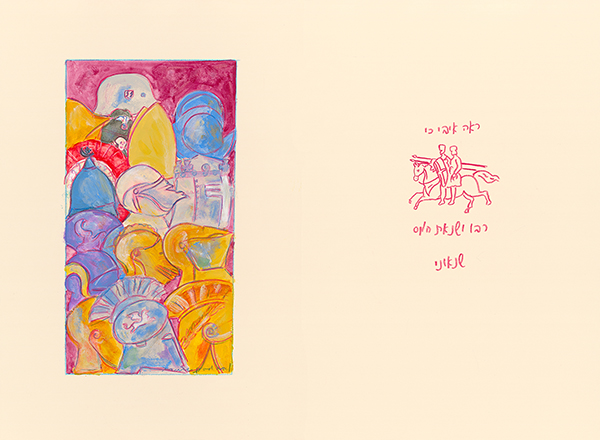 ראה איבי כי
רבו ושנאת חמס
שנאוני